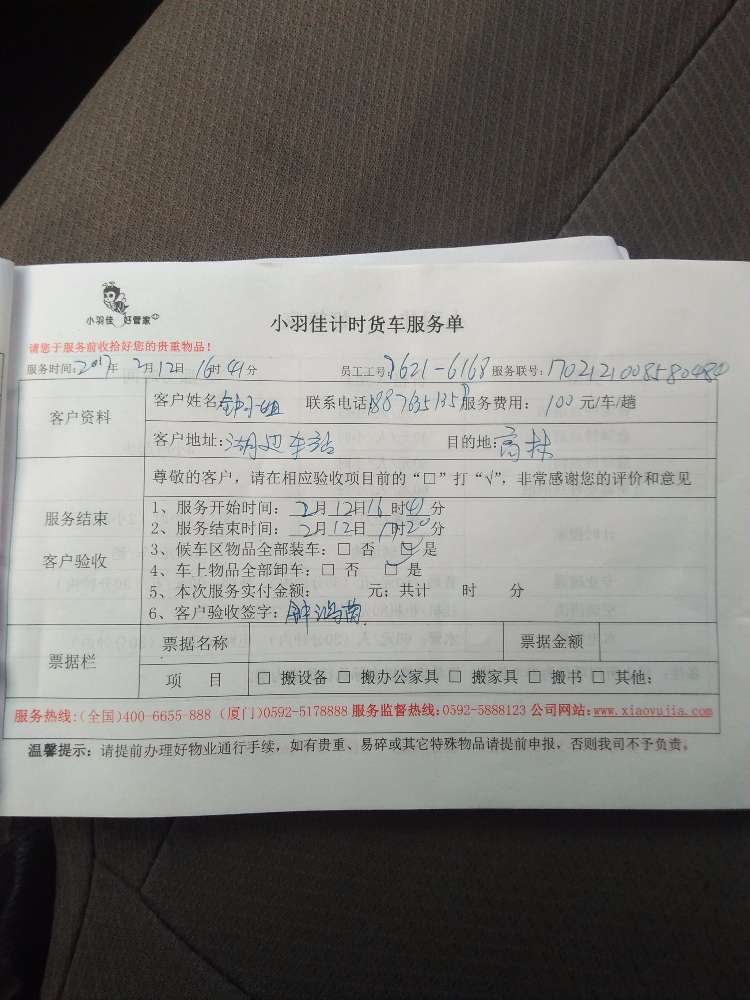 小羽佳 好管家
小羽佳计时货车服务单
请您于服务前收拾好您的贵重物品！
服务时间：2017年 2月12日 16时41分 员工工号：3621-6168 服务联号：1702121008580480
客户资料
客户姓名：钟小姐 联系电话： 服务费用：100元/车/趟
客户地址：湖边车站 目的地：高林
服务结束
客户验收
尊敬的客户，请在相应验收项目前的“□”打“√”，非常感谢您的评价和意见
1、服务开始时间：2月12日16时41分
2、服务结束时间：2月12日17时20分
3、候车区物品全部装车：□ 否 ☑ 是
4、车上物品全部卸车：□ 否 □ 是
5、本次服务实付金额： 元；共计 时 分
6、客户验收签字：
票据栏
票据名称 票据金额
项 目 □ 搬设备 □ 搬办公家具 □ 搬家具 □ 搬书 □ 其他：
服务热线：(全国)400-6655-888 (厦门)0592-5178888 服务监督热线：0592-5888123 公司网站：www.xiaoyujia.com
温馨提示：请提前办理好物业通行手续，如有贵重、易碎或其它特殊物品请提前申报，否则我司不予负责。